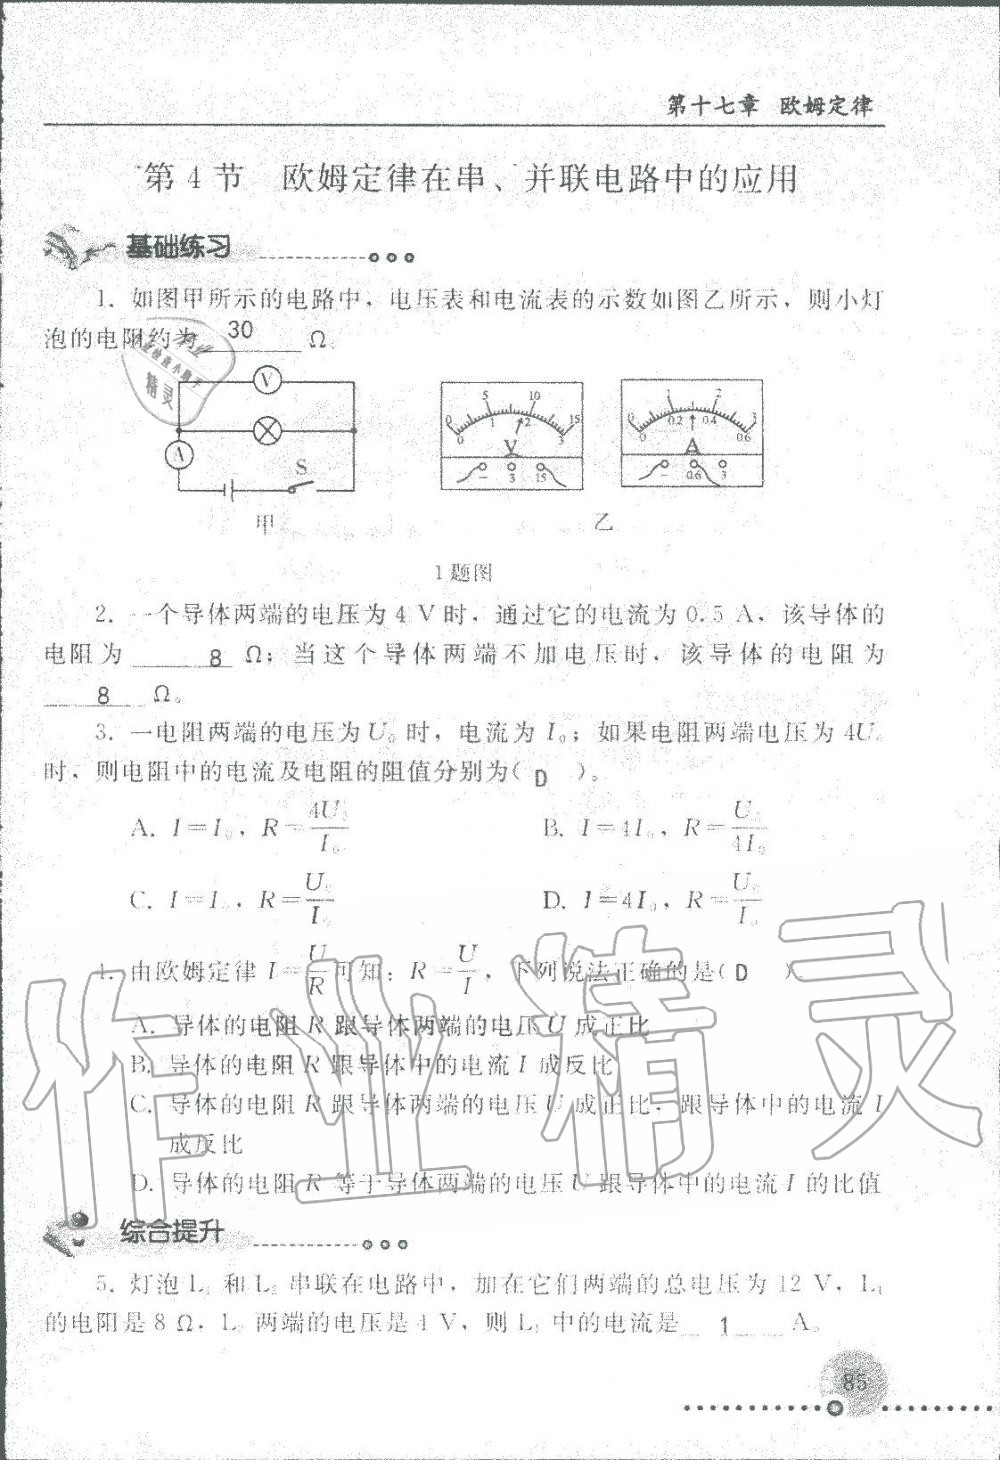 第十七章 欧姆定律
第 4 节 欧姆定律在串、并联电路中的应用
基础练习
1. 如图甲所示的电路中，电压表和电流表的示数如图乙所示，则小灯
泡的电阻约为 30 Ω。
V
A
S
甲
0 5 10 15
0 1 2 3
V
− 3 15
0 1 2 3
0 0.2 0.4 0.6
A
− 0.6 3
乙
1 题图
2. 一个导体两端的电压为 4 V 时，通过它的电流为 0.5 A，该导体的
电阻为 8 Ω；当这个导体两端不加电压时，该导体的电阻为
8 Ω。
3. 一电阻两端的电压为 U₀ 时，电流为 I₀；如果电阻两端电压为 4U₀
时，则电阻中的电流及电阻的阻值分别为( D )。
A. I=I₀，R=4U₀/I₀ B. I=4I₀，R=U₀/4I₀
C. I=I₀，R=U₀/I₀ D. I=4I₀，R=U₀/I₀
4. 由欧姆定律 I=U/R 可知：R=U/I，下列说法正确的是( D )
A. 导体的电阻 R 跟导体两端的电压 U 成正比
B. 导体的电阻 R 跟导体中的电流 I 成反比
C. 导体的电阻 R 跟导体两端的电压 U 成正比，跟导体中的电流 I
成反比
D. 导体的电阻 R 等于导体两端的电压 U 跟导体中的电流 I 的比值
综合提升
5. 灯泡 L₁ 和 L₂ 串联在电路中，加在它们两端的总电压为 12 V，L₁
的电阻是 8 Ω，L₂ 两端的电压是 4 V，则 L₁ 中的电流是 1 A。
85
作业精灵